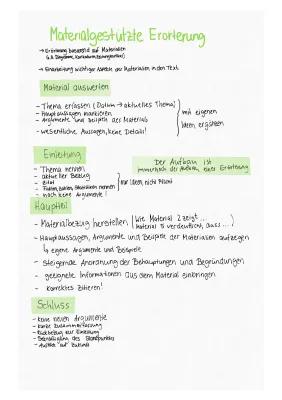 Materialgestützte Erörterung
→ Erörterung basierend auf Materialien
(z.B. Diagramm, Karikaturen, Zeitungsartikel)
→ Einarbeitung wichtiger Aspekte der Materialien in den Text
Material auswerten
- Thema erfassen (Datum → aktuelles Thema)
- Hauptaussagen markieren
- Argumente und Beispiele des Materials
- wesentliche Aussagen, keine Details!
mit eigenen
Ideen ergänzen
Einleitung
- Thema nennen
- aktueller Bezug
- Zitat
- Fakten, Zahlen, Statistiken nennen
- noch keine Argumente!
nur Ideen, nicht Pflicht
Der Aufbau ist
immernoch der Aufbau einer Erörterung
Hauptteil
- Materialbezug herstellen
Wie Material 2 zeigt...
Material 5 verdeutlicht, dass...
- Hauptaussagen, Argumente und Beispiele der Materialien aufzeigen
↳ eigene Argumente und Beispiele
- Steigernde Anordnung der Behauptungen und Begründungen
- geeignete Informationen aus dem Material einbringen
- korrektes Zitieren!
Schluss
- keine neuen Argumente
- kurze Zusammenfassung
- Rückbezug zur Einleitung
- Bekräftigung des Standpunktes
- Ausblick "auf" Zukunft